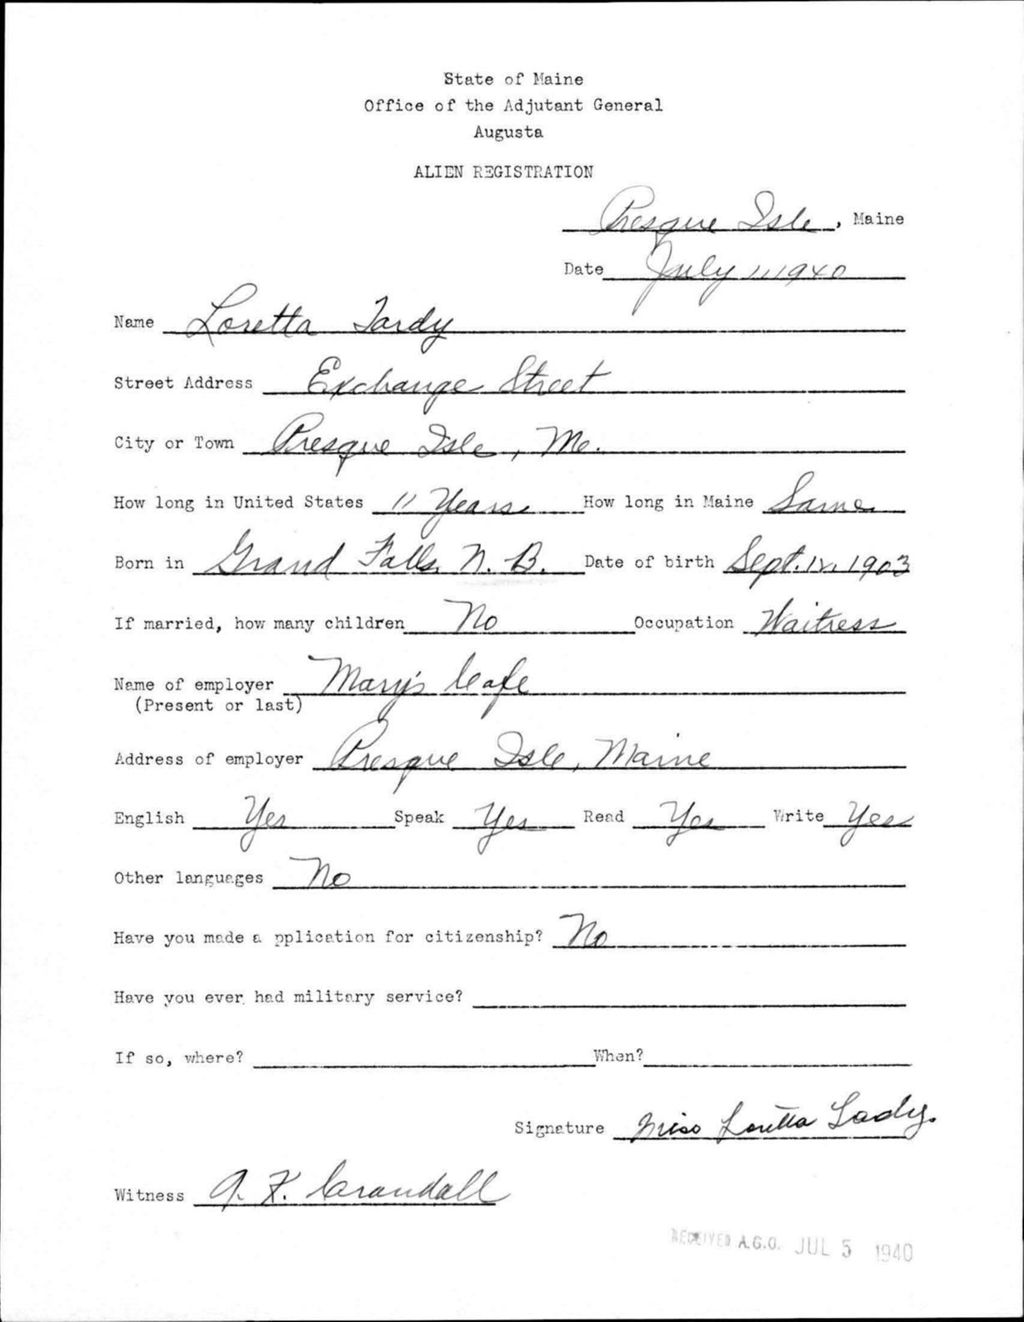 State of Maine
Office of the Adjutant General
Augusta
ALIEN REGISTRATION
Presque Isle, Maine
Date July 1, 1940
Name Loretta Tardy
Street Address Exchange Street
City or Town Presque Isle, Me.
How long in United States 11 Years How long in Maine Same
Born in Grand Falls, N. B. Date of birth Sept. 12, 1903
If married, how many children No Occupation Waitress
Name of employer Mary's Cafe
(Present or last)
Address of employer Presque Isle, Maine
English Yes Speak Yes Read Yes Write Yes
Other languages No
Have you made a pplication for citizenship? No
Have you ever had military service?
If so, where? When?
Signature Miss Loretta
Witness A. F. Crandall
RECEIVED A.G.O. JUL 5 1940